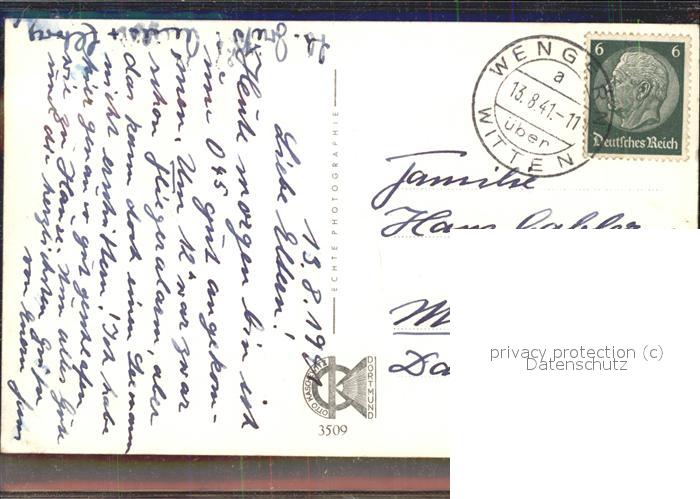 13.8.1941
Liebe Eltern!
Heute morgen bin ich
um 0 45 gut angekom-
men. Um 12 war zwar
schon Fliegeralarm, aber
das kann doch einen Seemann
nicht erschüttern! Ich habe
hier genau so gut geschlafen
wie zu Hause. Nun alles Gute
und die herzlichsten Grüße
von Eurem
ECHTE PHOTOGRAPHIE
OTTO MASCHKE
DORTMUND
3509
WENGERN
a
13.8.41.-11
über
WITTEN
6 6
Deutsches Reich
Familie
Hans
privacy protection (c)
Datenschutz